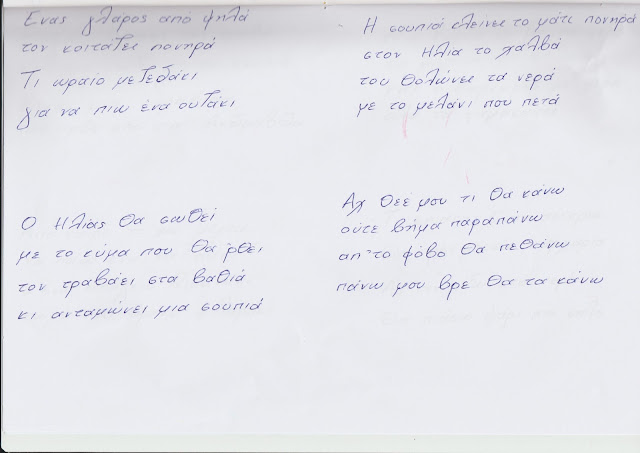 Ένας γλάρος από ψηλά
τον κοιτάζει πονηρά
Τι ωραίο μεζεδάκι
για να πιω ένα ουζάκι
Η σουπιά κλεινει το μάτι πονηρά
στον Ηλία το χαλβά
του θολώνει τα νερά
με το μελάνι που πετά
Ο Ηλίας θα σωθεί
με το κύμα που θα ρθει
τον τραβάει στα βαθιά
κι ανταμώνει μια σουπιά
Αχ Θεέ μου τι θα κάνω
ούτε βήμα παραπάνω
απ'το φόβο θα πεθάνω
πάνω μου βρε θα τα κάνω